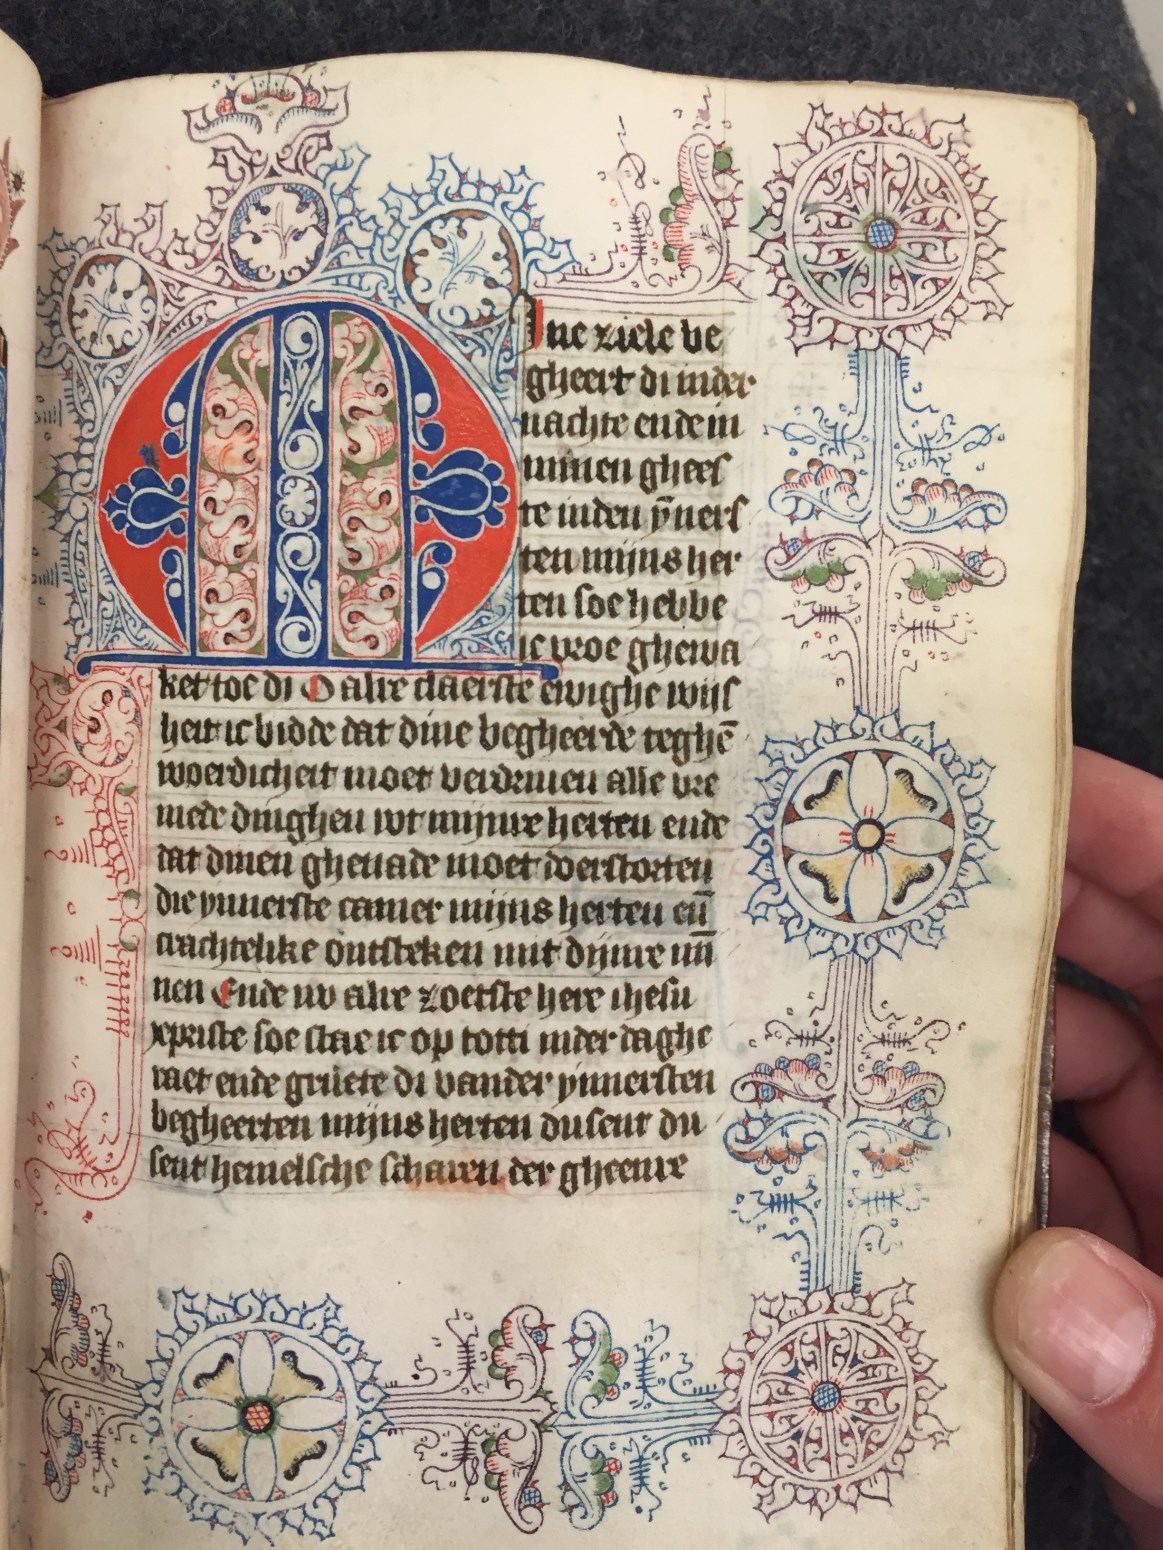 Mine ziele be
gheert di inder
nachte ende in
minen ghees
te inden ȳners
ten mijns her
ten soe hebbe
ic vroe ghewa
ket toe di O alre claerste ewighe wijs
heit ic bidde dat dine begheerde teghē
woerdicheit moet verdriuen alle vre
mede dinghen wt mijnre herten ende
dat dinen ghenade moet doerstorten
die ynnerste camer mijns herten eñ
crachtelike ontsteken mit dijnre mī
nen Ende nv alre zoetste here ihesu
xpriste soe stae ic op totti inder daghe
raet ende gruete di vander ynnersten
begheerten mijns herten dusent du
sent hemelsche scharen der gheenre